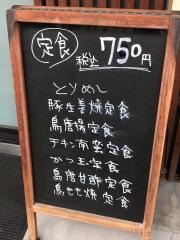 定食 税込 750円
とりめし
豚生姜焼定食
鳥唐揚定食
チキン南蛮定食
かつ玉定食
鳥唐甘酢定食
鳥もも焼定食